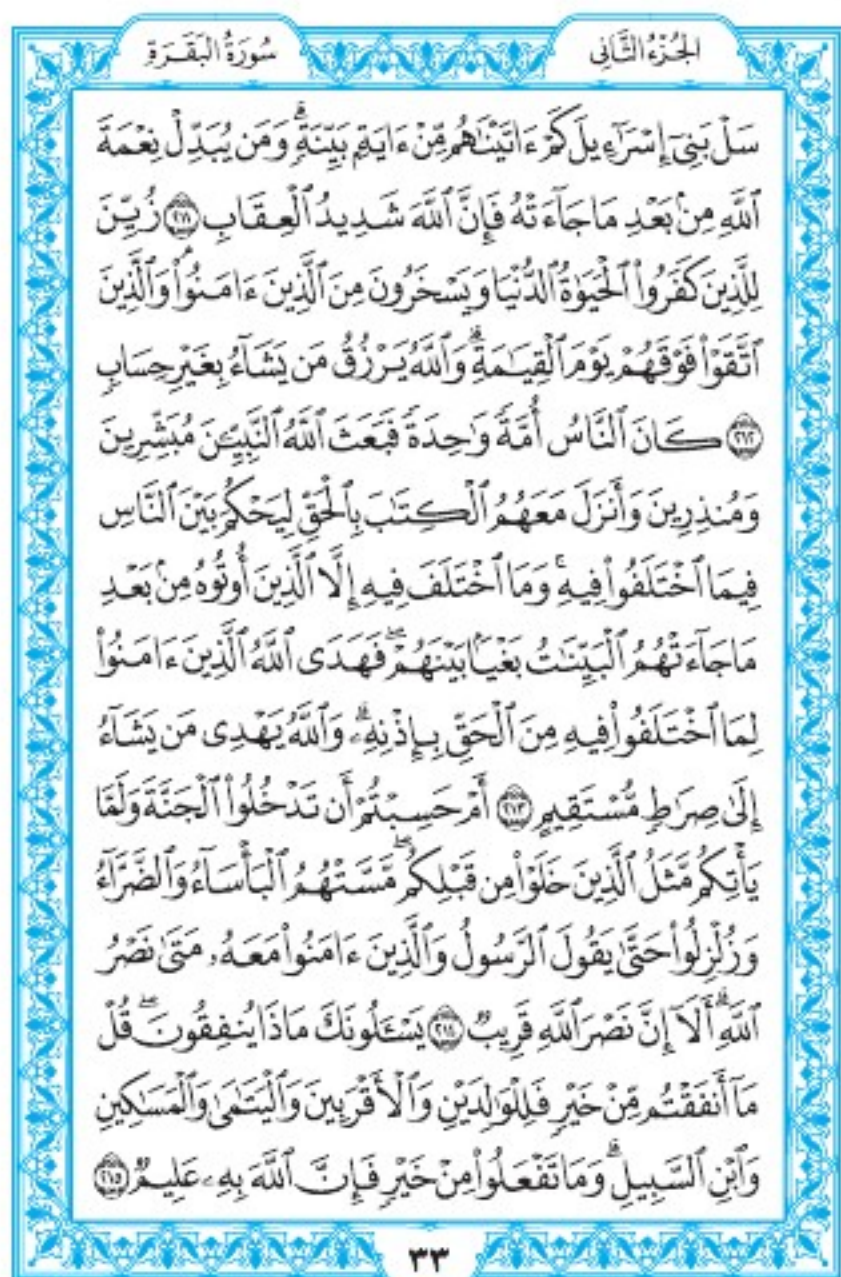 الجُزْءُ الثَّانِى
سُورَةُ البَقَرَةِ
سَلْ بَنِىٓ إِسْرَٰٓءِيلَ كَمْ ءَاتَيْنَٰهُم مِّنْ ءَايَةِۭ بَيِّنَةٍۗ وَمَن يُبَدِّلْ نِعْمَةَ
ٱللَّهِ مِنۢ بَعْدِ مَا جَآءَتْهُ فَإِنَّ ٱللَّهَ شَدِيدُ ٱلْعِقَابِ ٢١١ زُيِّنَ
لِلَّذِينَ كَفَرُوا۟ ٱلْحَيَوٰةُ ٱلدُّنْيَا وَيَسْخَرُونَ مِنَ ٱلَّذِينَ ءَامَنُوا۟ۘ وَٱلَّذِينَ
ٱتَّقَوْا۟ فَوْقَهُمْ يَوْمَ ٱلْقِيَٰمَةِۗ وَٱللَّهُ يَرْزُقُ مَن يَشَآءُ بِغَيْرِ حِسَابٍ
٢١٢ كَانَ ٱلنَّاسُ أُمَّةً وَٰحِدَةً فَبَعَثَ ٱللَّهُ ٱلنَّبِيِّۦنَ مُبَشِّرِينَ
وَمُنذِرِينَ وَأَنزَلَ مَعَهُمُ ٱلْكِتَٰبَ بِٱلْحَقِّ لِيَحْكُمَ بَيْنَ ٱلنَّاسِ
فِيمَا ٱخْتَلَفُوا۟ فِيهِۚ وَمَا ٱخْتَلَفَ فِيهِ إِلَّا ٱلَّذِينَ أُوتُوهُ مِنۢ بَعْدِ
مَا جَآءَتْهُمُ ٱلْبَيِّنَٰتُ بَغْيًۢا بَيْنَهُمْۖ فَهَدَى ٱللَّهُ ٱلَّذِينَ ءَامَنُوا۟
لِمَا ٱخْتَلَفُوا۟ فِيهِ مِنَ ٱلْحَقِّ بِإِذْنِهِۦۗ وَٱللَّهُ يَهْدِى مَن يَشَآءُ
إِلَىٰ صِرَٰطٍ مُّسْتَقِيمٍ ٢١٣ أَمْ حَسِبْتُمْ أَن تَدْخُلُوا۟ ٱلْجَنَّةَ وَلَمَّا
يَأْتِكُم مَّثَلُ ٱلَّذِينَ خَلَوْا۟ مِن قَبْلِكُمۖ مَّسَّتْهُمُ ٱلْبَأْسَآءُ وَٱلضَّرَّآءُ
وَزُلْزِلُوا۟ حَتَّىٰ يَقُولَ ٱلرَّسُولُ وَٱلَّذِينَ ءَامَنُوا۟ مَعَهُۥ مَتَىٰ نَصْرُ
ٱللَّهِۗ أَلَآ إِنَّ نَصْرَ ٱللَّهِ قَرِيبٌ ٢١٤ يَسْـَٔلُونَكَ مَاذَا يُنفِقُونَۖ قُلْ
مَآ أَنفَقْتُم مِّنْ خَيْرٍ فَلِلْوَٰلِدَيْنِ وَٱلْأَقْرَبِينَ وَٱلْيَتَٰمَىٰ وَٱلْمَسَٰكِينِ
وَٱبْنِ ٱلسَّبِيلِۗ وَمَا تَفْعَلُوا۟ مِنْ خَيْرٍ فَإِنَّ ٱللَّهَ بِهِۦ عَلِيمٌ ٢١٥
٣٣